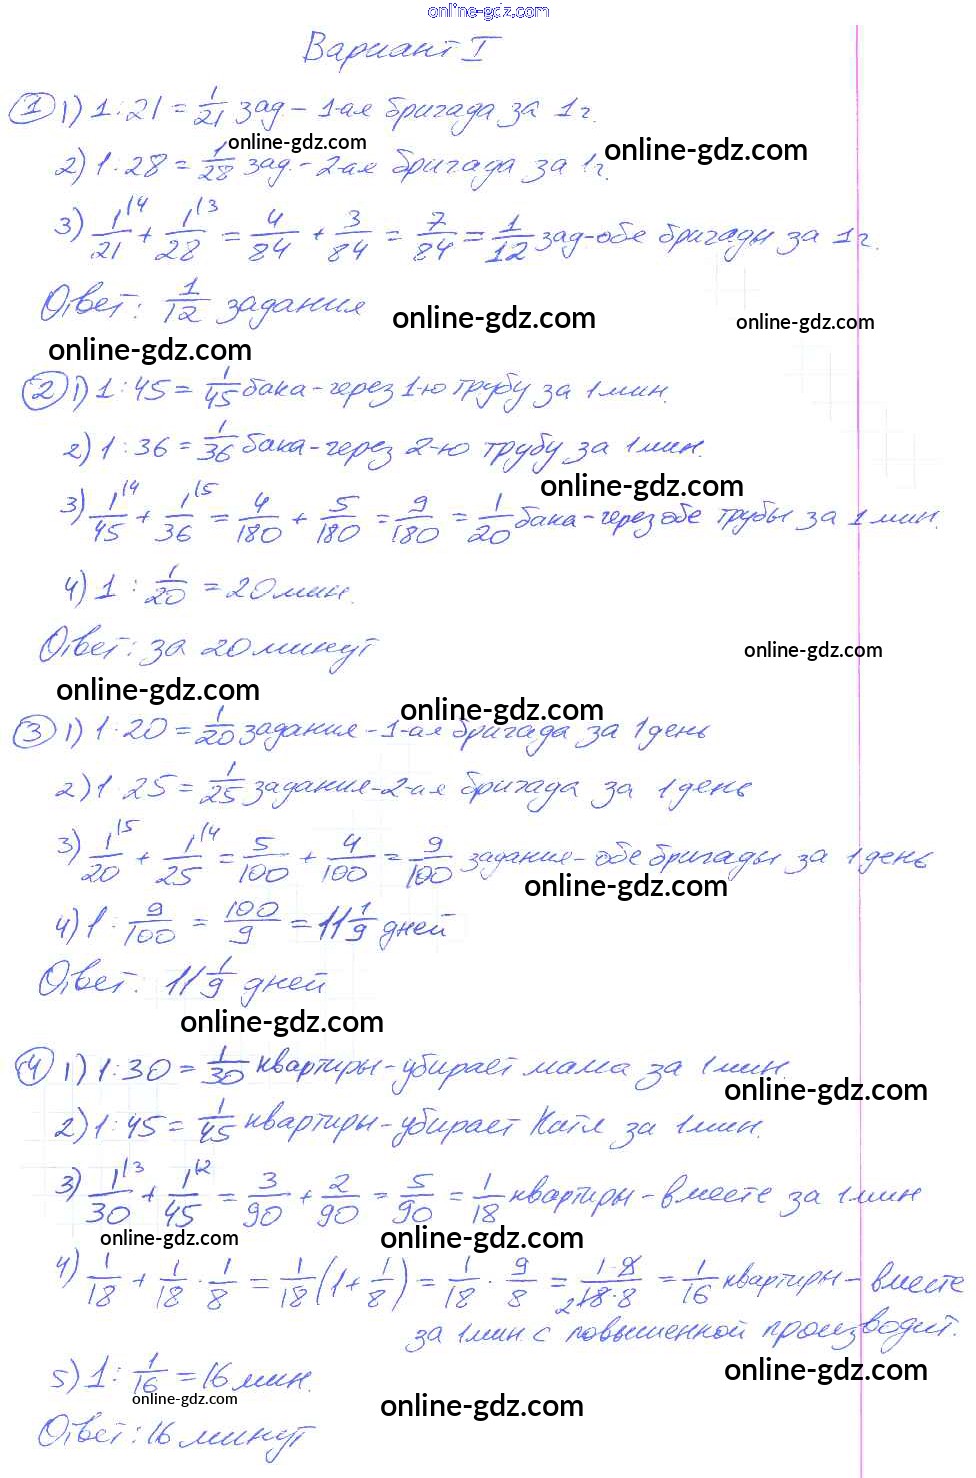 online-gdz.com
Вариант I
① 1) 1:21 = 1/21 зад. – 1-ая бригада за 1 г.
online-gdz.com online-gdz.com
2) 1:28 = 1/28 зад. – 2-ая бригада за 1 г.
3) 1/21 \4 + 1/28 \3 = 4/84 + 3/84 = 7/84 = 1/12 зад – обе бригады за 1 г.
Ответ: 1/12 задания
online-gdz.com online-gdz.com
online-gdz.com
② 1) 1:45 = 1/45 бака – через 1-ю трубу за 1 мин.
2) 1:36 = 1/36 бака – через 2-ю трубу за 1 мин.
online-gdz.com
3) 1/45 \4 + 1/36 \5 = 4/180 + 5/180 = 9/180 = 1/20 бака – через обе трубы за 1 мин.
4) 1 : 1/20 = 20 мин.
Ответ: за 20 минут
online-gdz.com
online-gdz.com
online-gdz.com
③ 1) 1:20 = 1/20 задания – 1-ая бригада за 1 день
2) 1:25 = 1/25 задания – 2-ая бригада за 1 день
3) 1/20 \5 + 1/25 \4 = 5/100 + 4/100 = 9/100 задания – обе бригады за 1 день
online-gdz.com
4) 1 : 9/100 = 100/9 = 11 1/9 дней
Ответ: 11 1/9 дней
online-gdz.com
④ 1) 1:30 = 1/30 квартиры – убирает мама за 1 мин.
online-gdz.com
2) 1:45 = 1/45 квартиры – убирает Катя за 1 мин.
3) 1/30 \3 + 1/45 \2 = 3/90 + 2/90 = 5/90 = 1/18 квартиры – вместе за 1 мин
online-gdz.com online-gdz.com
4) 1/18 + 1/18 · 1/8 = 1/18 (1 + 1/8) = 1/18 · 9/8 = 1·9/18·8 2 = 1/16 квартиры – вместе
за 1 мин. с повышенной производит.
5) 1 : 1/16 = 16 мин.
online-gdz.com
online-gdz.com online-gdz.com
Ответ: 16 минут